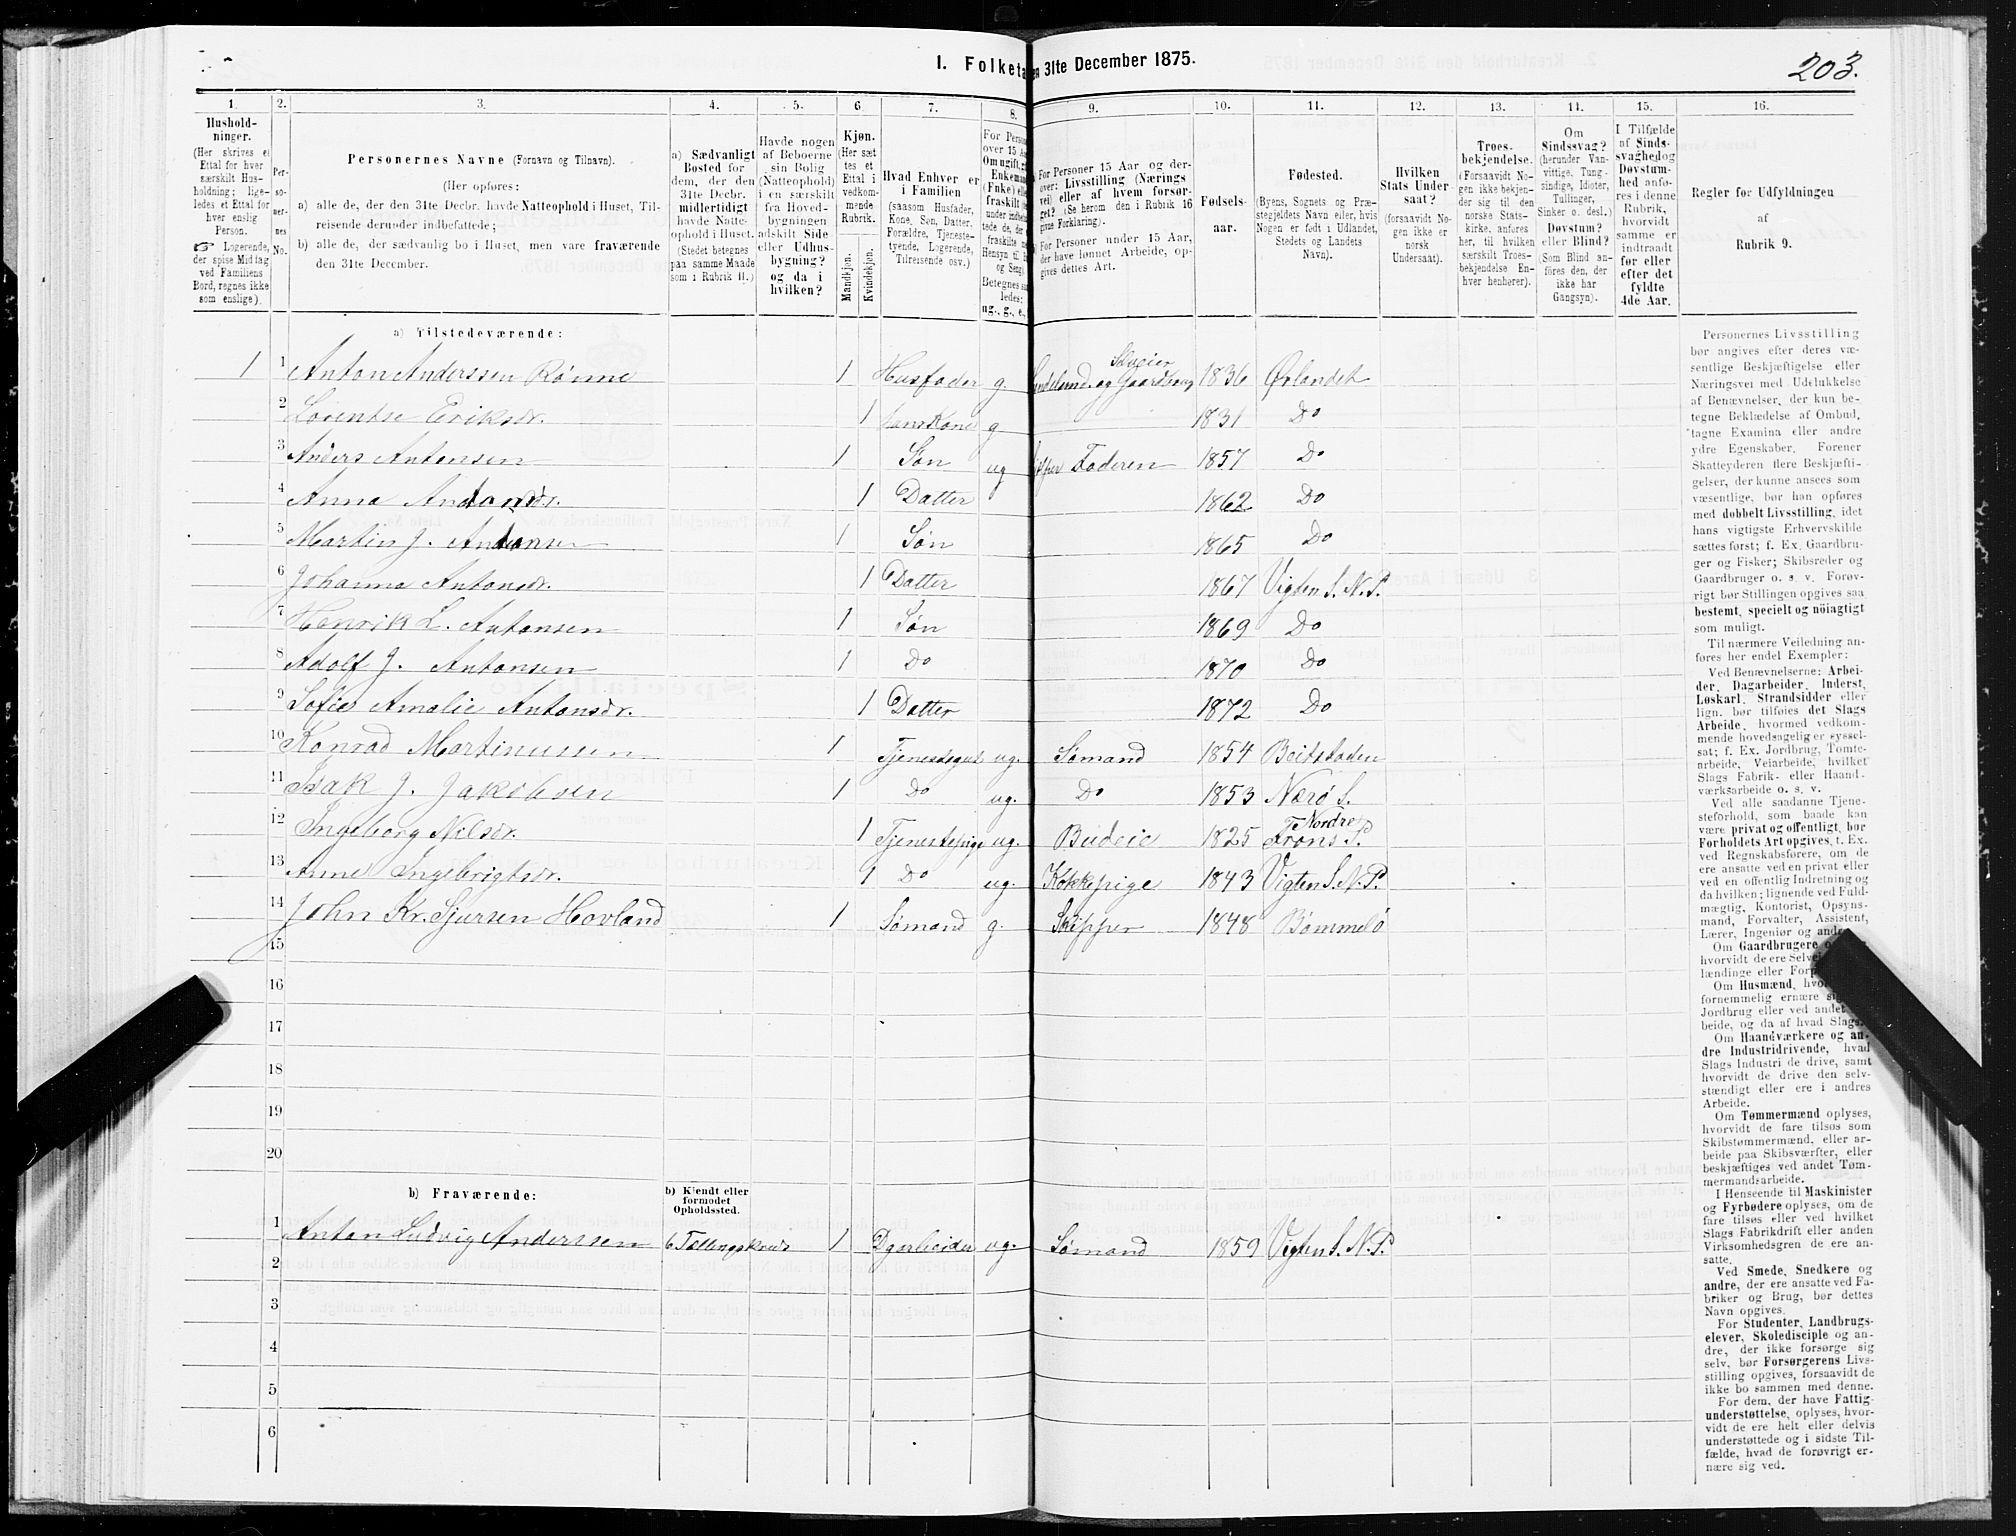 I. Folketa en 31te December 1875.
203.
1. 2. 3. 4. 5. 6. 7. 8. 9. 10. 11. 12. 13. 14. 15. 16.
Hushold-
ninger.
(Her skrives et
Ettal for hver
særskilt Hus-
holdning; lige-
ledes et Ettal for
hver enslig
Person.
☞ Logerende,
der spise Middag
ved Familiens
Bord, regnes ikke
som enslige).
Per-
so-
ner-
nes
No.
Personernes Navne (Fornavn og Tilnavn).
(Her opføres:
a) alle de, der den 31te Decbr. havde Natteophold i Huset, Til-
reisende derunder indbefattede;
b) alle de, der sædvanlig bo i Huset, men vare fraværende
den 31te December.
a) Sædvanligt
Bosted for
dem, der den
31te Decbr.
midlertidigt
havde Natte-
ophold i Huset.
(Stedet betegnes
paa samme Maade
som i Rubrik 11.)
Havde nogen
af Beboerne
sin Bolig
(Natteophold)
i en særskilt
fra Hoved-
bygningen
adskilt Side
eller Udhus-
bygning?
og da i
hvilken?
Kjøn.
(Her sæt
tes et
Ettal i
vedkom-
mende
Rubrik.
Mandkjøn.
Kvindekjøn.
Hvad Enhver er
i Familien
(saasom Husfader,
Kone, Søn, Datter,
Forældre, Tjeneste-
tyende, Logerende,
Tilreisende osv.)
For Perso
over 15 Aa
Om ugift, g
Enkeman
(Fnke) ell
fraskilt
ledes:
ug., g., e.,
For Personer 15 Aar og der-
over: Livsstilling (Nærings
vei) eller af hvem forsør-
get? (Se herom den i Rubrik 16
givne Forklaring).
For Personer under 15 Aar,
der have lønnet Arbeide, op-
gives dettes Art.
Fødsels-
aar.
Fødested.
(Byens, Sognets og Præ-
stegjeldets Navn eller, hvis
Nogen er født i Udlandet,
Stedets og Landets
Navn).
Hvilken
Stats Under-
saat?
(forsaavidt No-
gen ikke er
norsk
Undersaat).
Troes-
bekjendelse.
(Forsaavidt No-
gen ikke bekjen-
der sig til den
norske Stats-
kirke, anføres
her, til hvilken
særskilt Troes-
bekjendelse En-
hver henhører).
Om
Sindssvag?
(herunder Van-
vittige, Tung-
sindige, Idioter,
Tullinger,
Sinker o. desl.)
Døvstum?
eller Blind?
(Som Blind an-
føres den, der
ikke har
Gangsyn).
I Tilfælde
af Sinds-
svaghed og
Døvstum-
hed anfø-
res i denne
Rubrik,
hvorvidt
samme er
indtraadt
før eller
efter det
fyldte
4de Aar.
Regler for Udfyldningen
af
Rubrik 9.
a) Tilstedeværende:
1 1 Anton Anderssen Rønne 1 Husfader g. og Gaardbrug Selveier 1836 Ørlandet
2 Lorentse Eriksdr. 1 hans Kone g 1831 Do
3 Anders Antonsen 1 Søn ug Faderen 1857 Do
4 Anna Antonsdr. 1 Datter 1862 Do
5 Martin J. Antonsen 1 Søn 1865 Do
6 Johanna Antonsdr. 1 Datter 1867 Vigten S. N. P.
7 Henrik L. Antonsen 1 Søn 1869 Do
8 Adolf J. Antonsen 1 Do 1870 Do
9 Sofie Amalie Antonsdr. 1 Datter 1872 Do
10 Konrad Martinussen 1 Tjenestegut ug. Sømand 1854 Beitstaden
11 Isak J. Jakobsen 1 Do ug. Do 1853 Nærø S.
12 Ingeborg Nilsdr. 1 Tjenestepige ug. Budeie 1825 Nordre Frons P.
13 Anne Ingebrigtsdr. 1 Do ug. Kokkepige 1843 Vigten S. N. P.
14 John Kr. Sjursen Hovland 1 Sømand g. Skipper 1848 Bømmelø
15
16
17
18
19
20
b) Fraværende:
b) Kjendt eller
formodet
Opholdssted.
1 Anton Ludvig Anderssen 6 Tællingskreds 1 Dgarbeider ug. Sømand 1859 Vigten S. N. P.
2
3
4
5
6
Personernes Livsstilling
bør angives efter deres væ-
sentlige Beskjæftigelse eller
Næringsvei med Udelukkelse
af Benævnelser, der kun be-
tegne Beklædelse af Ombud,
tagne Examina eller andre
ydre Egenskaber. Forener
Skatteyderen flere Beskjæfti-
gelser, der kunne ansees som
væsentlige, bør han opføres
med dobbelt Livsstilling, idet
hans vigtigste Erhvervskilde
sættes først; f. Ex. Gaardbru-
ger og Fisker; Skibsreder og
Gaardbruger o. s. v. Forøv-
rigt bør Stillingen opgives saa
bestemt, specielt og nöiagtigt
som muligt.
Til nærmere Veiledning an-
føres her endel Exempler:
Ved Benævnelserne: Arbei-
der, Dagarbeider, Inderst,
Løskarl, Strandsidder eller
lign. bør tilføies det Slags
Arbeide, hvormed vedkom-
mende hovedsagelig er syssel-
sat; f. Ex. Jordbrug, Tomte-
arbeide, Veiarbeide, hvilket
Slags Fabrik- eller Haand-
værksarbeide o. s. v.
Ved alle saadanne Tjene-
steforhold, som baade kan
være privat og offentligt, bør
Forholdets Art opgives, t. Ex.
ved Regnskabsførere, om de
ere ansatte ved en privat eller
ved en offentlig Indretning og
da hvilken; lignende ved Fuld-
mægtig, Kontorist, Opsyns-
mand, Forvalter, Assistent,
Lærer, Ingeniør og andre.
Om Gaardbrugere o
hvorvidt de ere Selvei
lændinge eller Forp
Om Husmænd, hvo
fornemmelig ernære si
Jordbrug eller ved andet
beide, og da af hvad Slags.
Om Haandværkere og an-
dre Industridrivende, hvad
Slags Industri de drive, samt
hvorvidt de drive den selv-
stændigt eller ere i andres
Arbeide.
Om Tømmermænd oplyses,
hvorvidt de fare tilsøs som
Skibstømmermænd, eller ar-
beide paa Skibsværfter, eller
beskjæftiges ved andet Tøm-
mermandsarbeide.
I Henseende til Maskinister
og Fyrbødere oplyses, om de
fare tilsøs eller ved hvilket
Slags Fabrikdrift eller anden
Virksomhedsgren de ere an-
satte.
Ved Smede, Snedkere og
andre, der ere ansatte ved Fa-
briker og Brug, bør dettes
Navn opgives.
For Studenter, Landbrugs-
elever, Skoledisciple og an-
dre, der ikke forsørge sig
selv, bør Forsørgerens Livs-
stilling opgives, forsaavidt de
ikke bo sammen med denne.
For dem, der have Fattig-
understøttelse, oplyses, hvor-
vidt de ere helt eller delvis
understøttede og i sidste Til-
fælde, hvad de forøvrigt er-
nære sig ved.